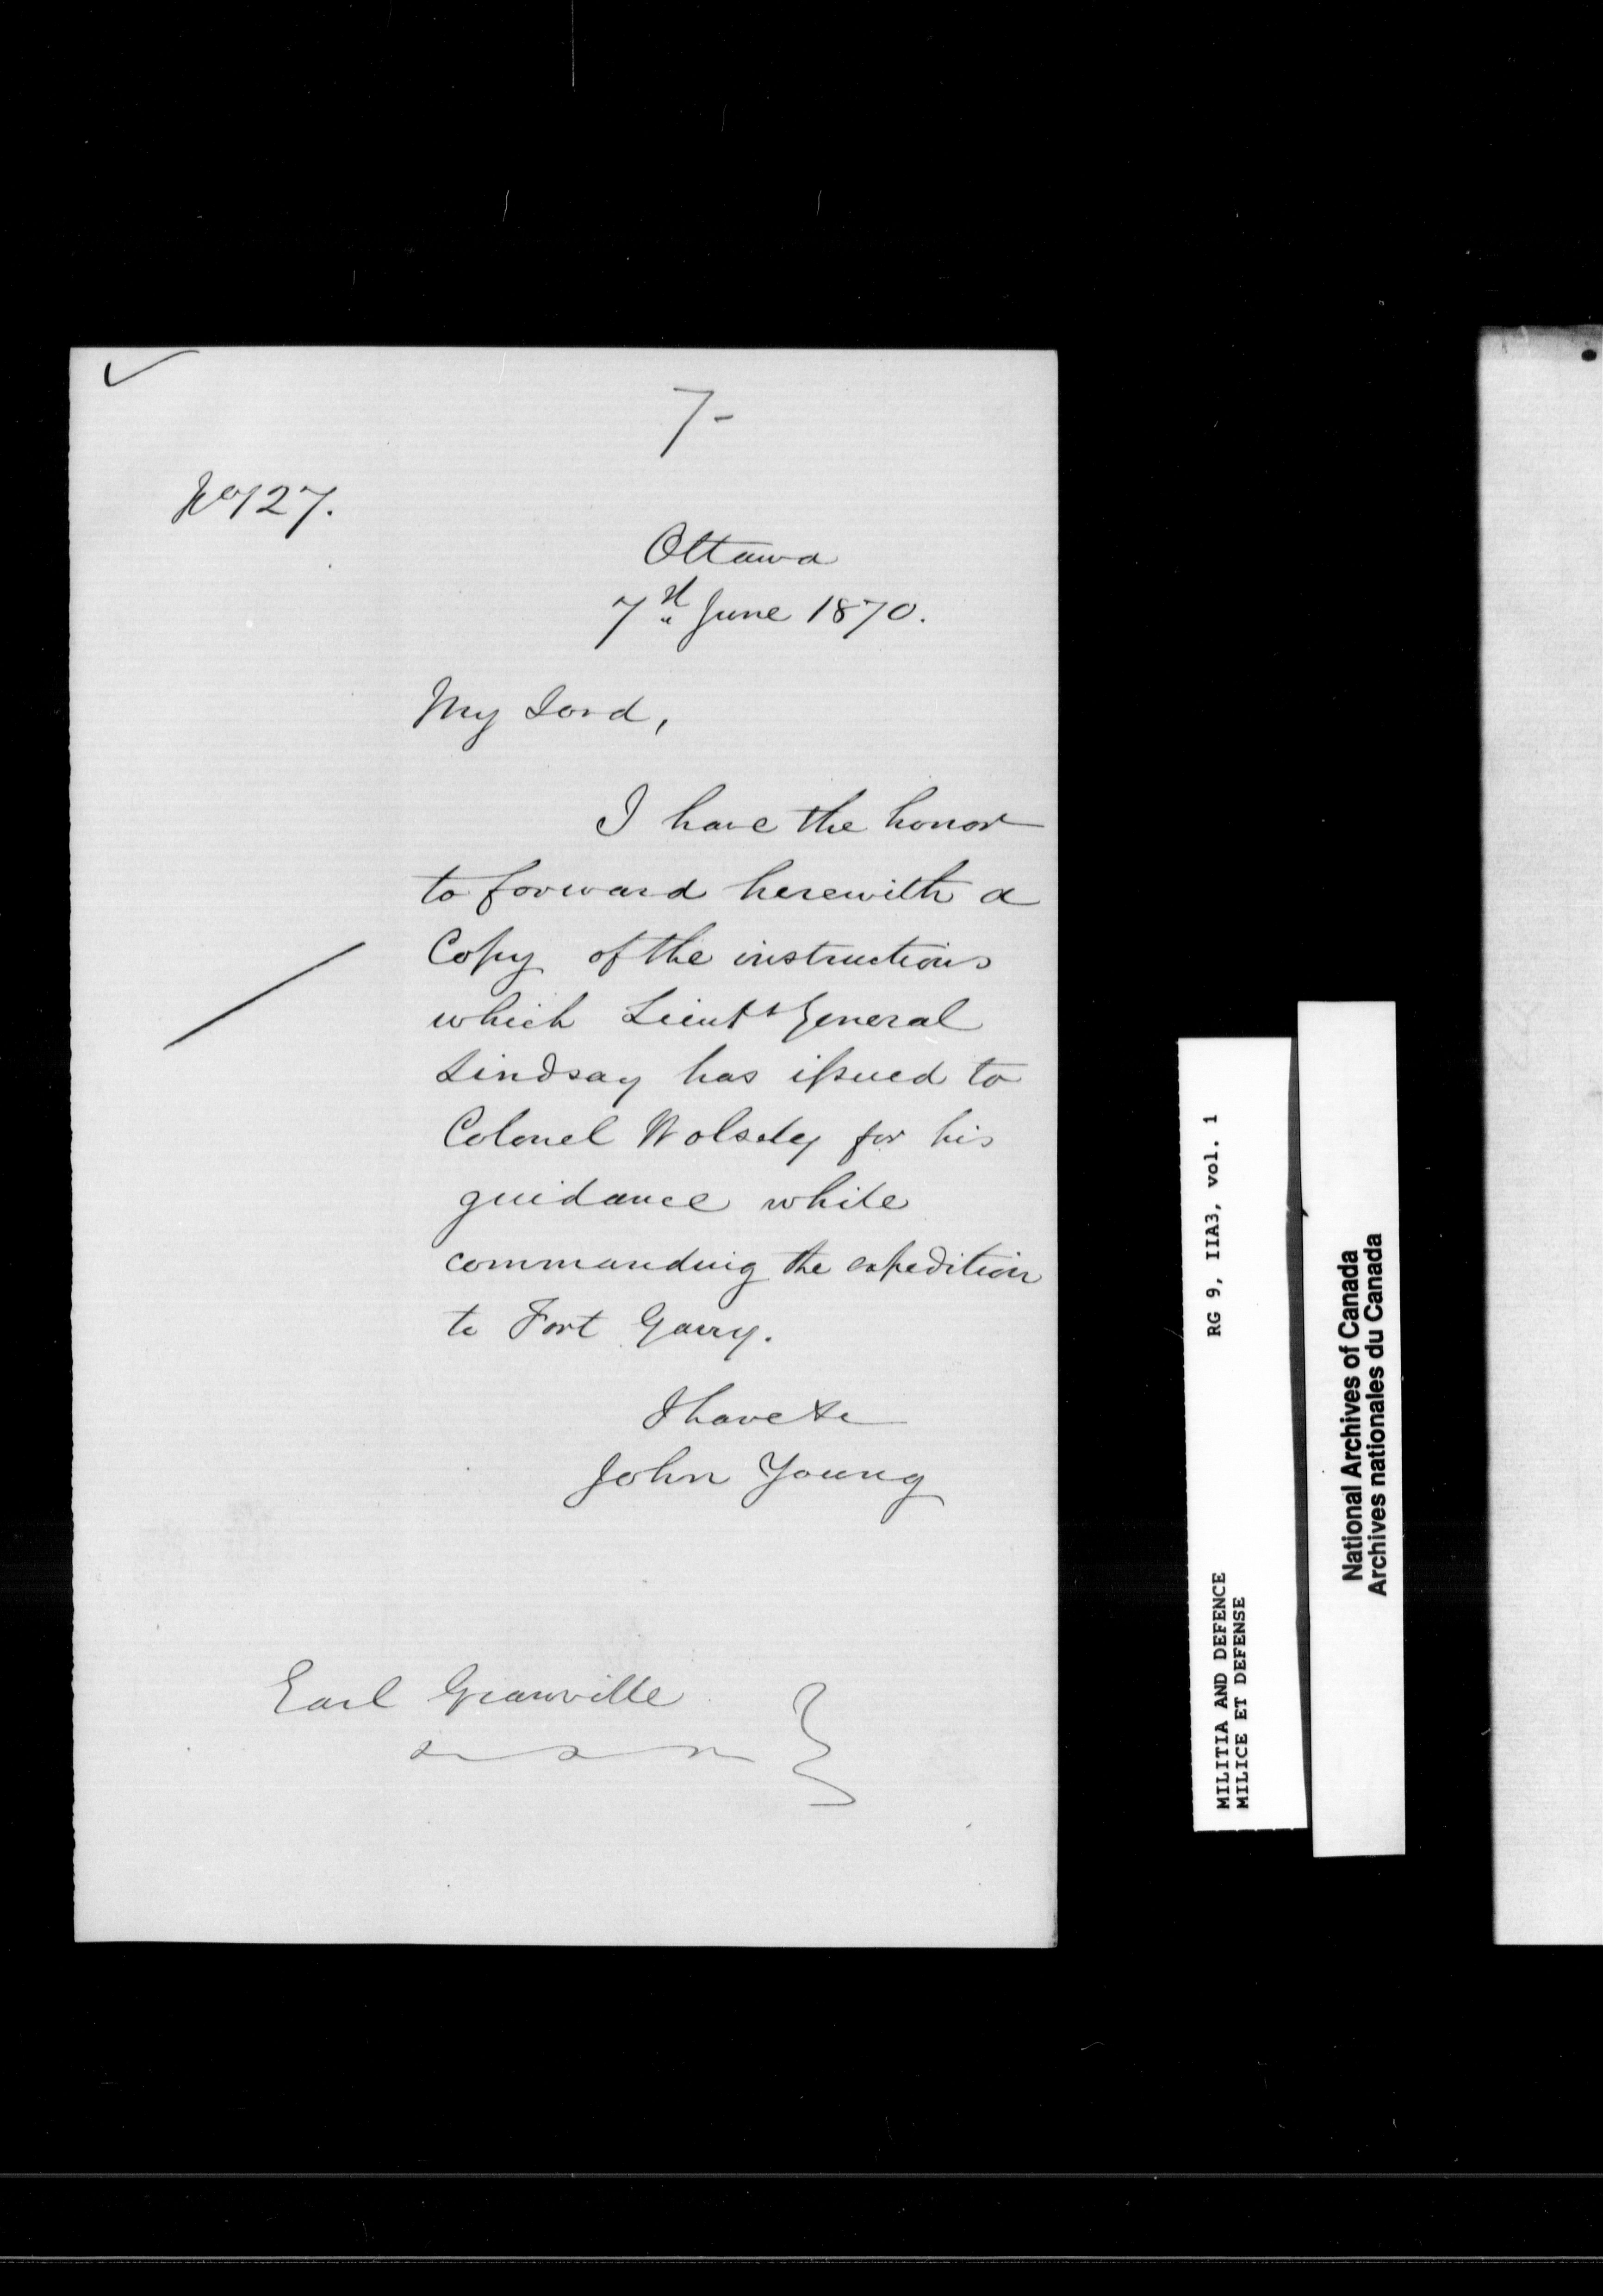 7-
No 127.
Ottawa
7th June 1870.
My Lord,
I have the honor
to forward herewith a
Copy of the instructions
which Lieutt General
Lindsay has issued to
Colonel Wolsely for his
guidance while
commanding the expedition
to Fort Garry.
I have &c
John Young
Earl Granville
RG 9, IIA3, vol. 1
MILITIA AND DEFENCE
MILICE ET DEFENSE
National Archives of Canada
Archives nationales du Canada